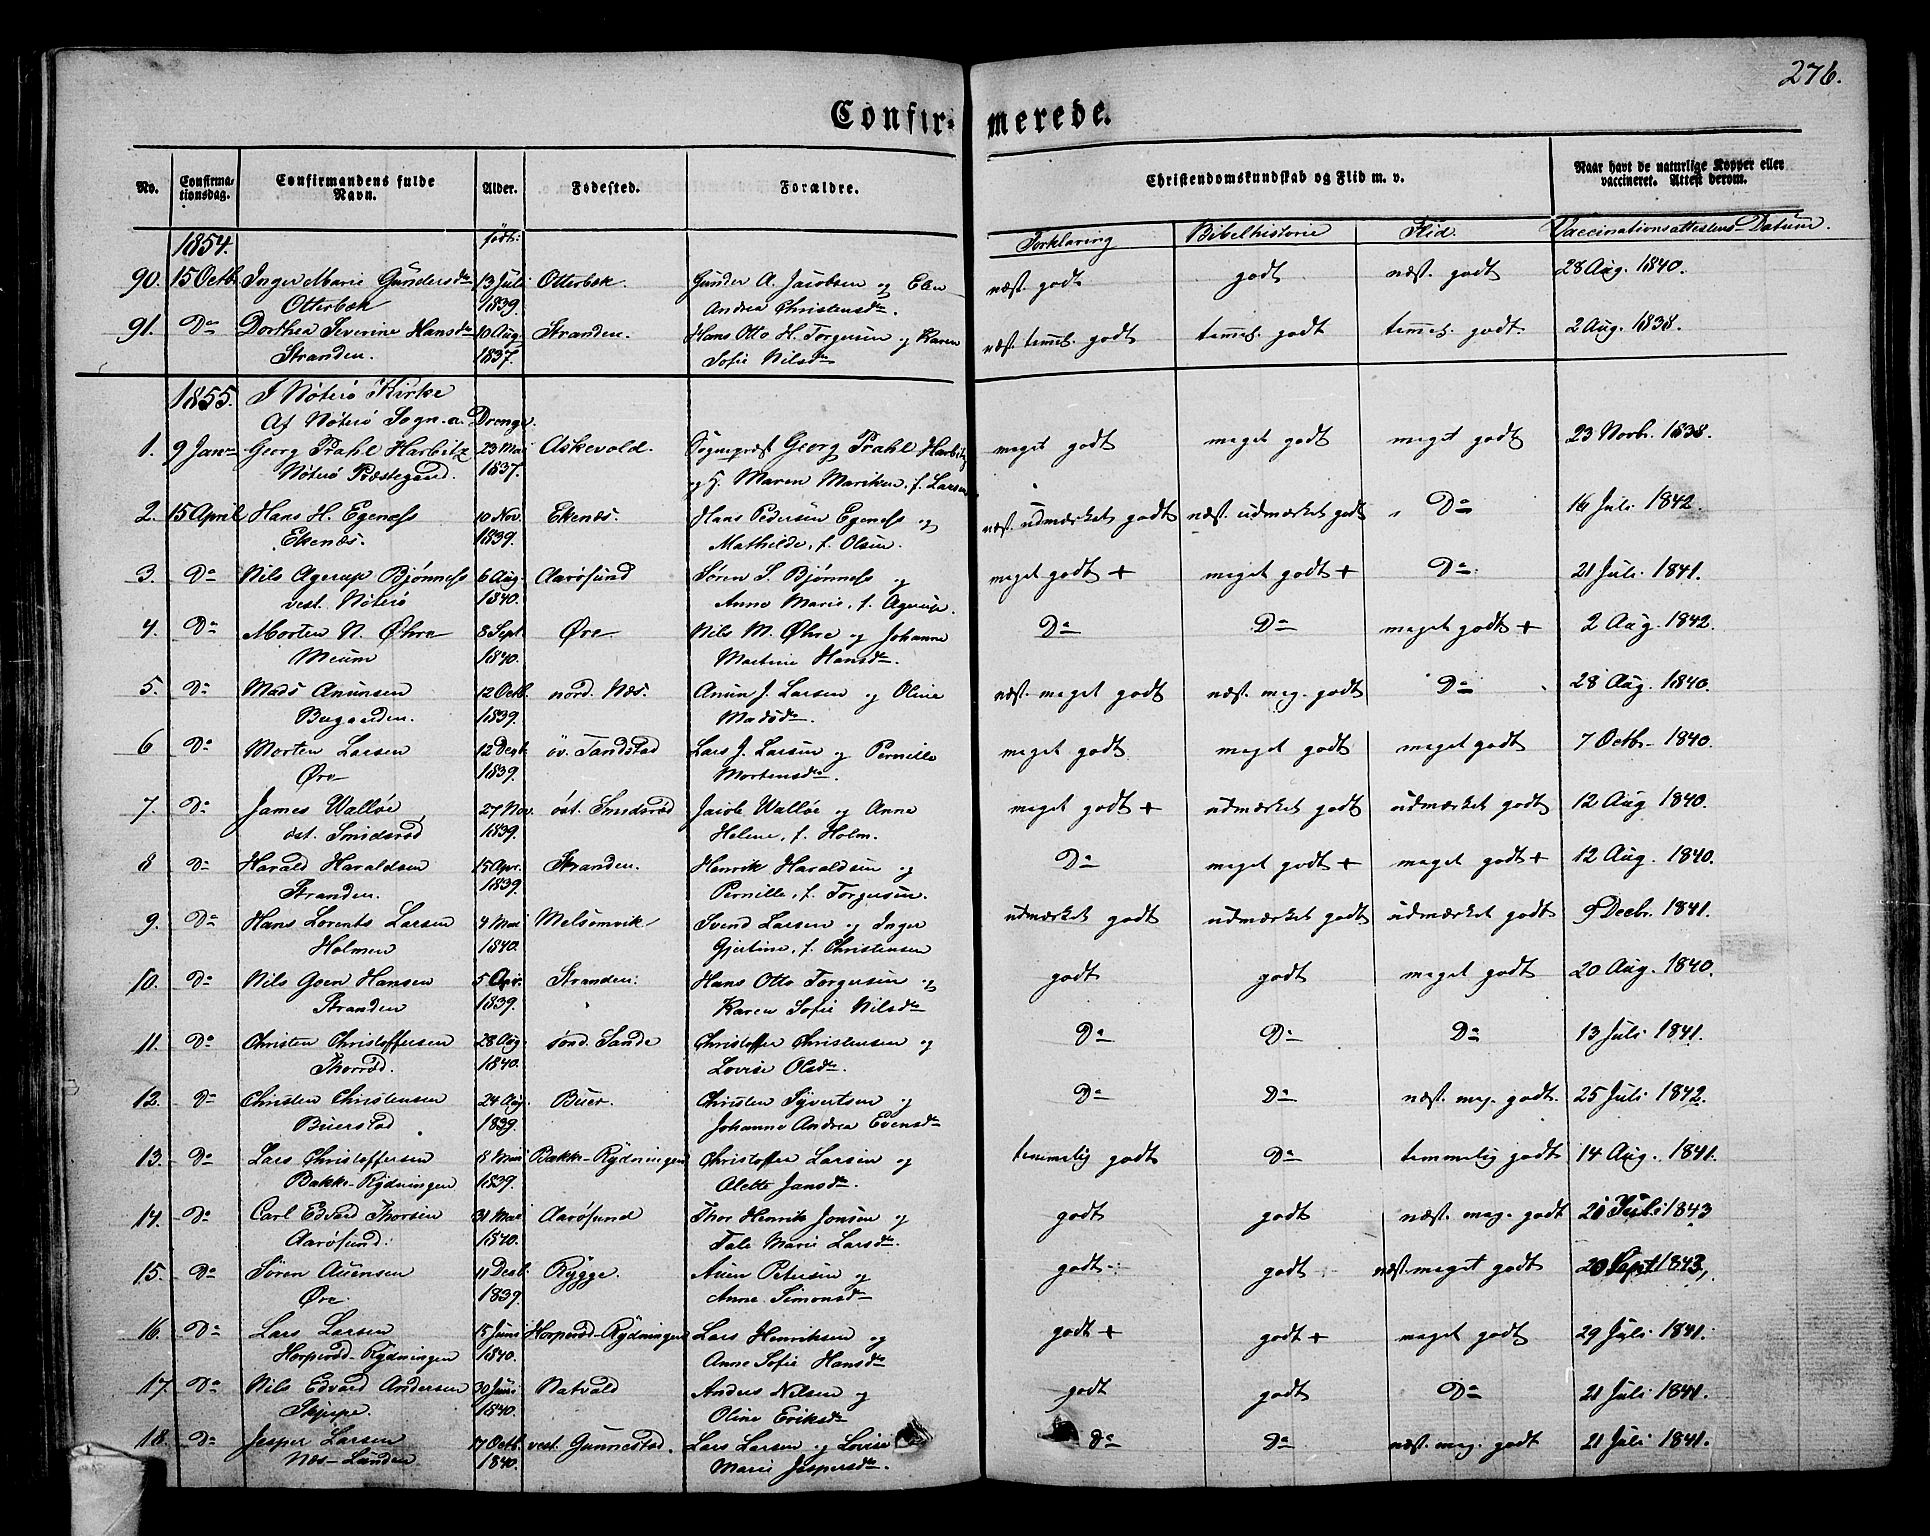 276.
Confirmerede.
No. Confirmationsdag. Confirmandens fulde Navn. Alder. Fødested. Forældre. Christendomskundskab og Flid m. v. Naar havt de naturlige Kopper eller vaccineret. Attest derom.
1854. født: Forklaring Bibelhistorie Flid. Vaccinationsattestens Datum.
90. 15 Octb. Inger Marie Gundersd. 13 Juli Otterbek. Gunder A. Jacobsen og Elen næst. godt godt næst. godt 28 Aug. 1840.
Otterbek 1839. Andrea Christensd.
91. Do Dorthea Severine Hansd. 10 Aug. Stranden. Hans Otto H. Torgersen og Karen næst. temel. godt temel. godt temel. godt. 2 Aug. 1838.
Stranden. 1837. Sofie Nilsd.
1855. I Nøterø Kirke
Af Nøterø Sogn. a. Drenge.
1. 9 Jan. Georg Prahl Harbitz 23 Mai Askevold. Sognepræst Georg Prahl Harbitz meget godt meget godt meget godt 23 Novb. 1838.
Nøterø Præstegaard. 1837. og H. Maren Mariken, f. Larsen
2. 15 April Hans H. Egeness 10 Nov. Ekenæs. Hans Pedersen Egeness og næst. udmærket godt næst. udmærket godt Do 16 Juli 1842.
Ekenæs. 1839. Mathilde, f. Olsen.
3. Do Nils Agerup Bjønness 6 Aug. Aarøsund Søren S. Bjønness og meget godt + meget godt + Do 21 Juli 1841.
vest. Nøterø 1840. Anne Marie, f. Agerup.
4. Do Morten N. Øhre 8 Sept. Øre Nils M. Øhre og Johanne Do Do meget godt + 2 Aug. 1842.
Meum 1840. Martine Hansd.
5. Do Mads Anunsen 12 Octb. nord. Næs. Anun J. Larsen og Oline næst. meget godt næst. meg. godt Do 28 Aug. 1840.
Bugaarden. 1839. Madsd.
6 Do Morten Larsen 12 Decb. øv. Tandstad Lars J. Larsen og Pernille meget godt meget godt meget godt 7 Octb. 1840.
Øre 1839. Mortensd.
7. Do James Walløe 27 Nov. øst. Smidsrød Jacob Walløe og Anne meget godt + udmærket godt udmærket godt 12 Aug. 1840.
øst. Smidsrød 1839. Helene, f. Holm.
8 Do Harald Haraldsen 15 Apr. Stranden. Henrik Haraldsen og Do meget godt + meget godt + 12 Aug. 1840.
Stranden. 1839. Pernille, f. Torgersen.
9. Do Hans Lorents Larsen 4 Mai Melsomvik Svend Larsen og Inger udmærket godt udmærket godt udmærket godt 9 Decbr. 1841.
Holmen 1840. Gjertine, f. Christensen
10. Do Nils Goen Hansen 5 Apr. Stranden. Hans Otto Torgersen og godt godt meget godt 20 Aug. 1840.
Stranden 1839. Karen Sofie Nilsd.
11. Do Christen Christoffersen 28 Aug. sønd. Sande Christoffer Christensen og Do Do Do 13 Juli 1841.
Thorrød. 1840. Lovise Olsd.
12. Do Christen Christensen 24 Aug. Buer. Christen Syvertsen og Do Do næst. meg. godt. 25 Juli 1842.
Buerstad 1839. Johanne Andrea Evensd.
13. Do Lars Christoffersen 8 Mai Bakke-Rydningen Christoffer Larsen og temmelig godt Do temmelig godt 14 Aug. 1841.
Bakke-Rydningen 1839. Alette Jansd.
14. Do Carl Edvard Thorsen 31 Mai Aarøsund Thor Henrik Jonsen og godt godt næst. meg. godt 21 Juli 1843
Aarøsund. 1840. Tale Marie Larsd.
15. Do Søren Auensen 11 Decb. Rygge. Auen Petersen og godt godt næst. meget godt 20 Sept. 1843,
Øre. 1839. Anne Simonsd.
16. Do Lars Larsen 15 Juni Horperød-Rydningen Lars Henriksen og godt + godt + meget godt 29 Juli 1841.
Horperød-Rydningen 1840. Anne Sofie Hansd.
17. Do Nils Edvard Andersen 30 Juni Natvald Anders Nilsen og godt godt Do 21 Juli 1841.
1840. Oline Eriksd.
18. Do Jesper Larsen 17 Octb. vest. Gunnestad. Lars Larsen og Lovise Do Do næst. meg. godt 21 Juli 1841.
Næs-Landen 1840. Marie Jespersd.